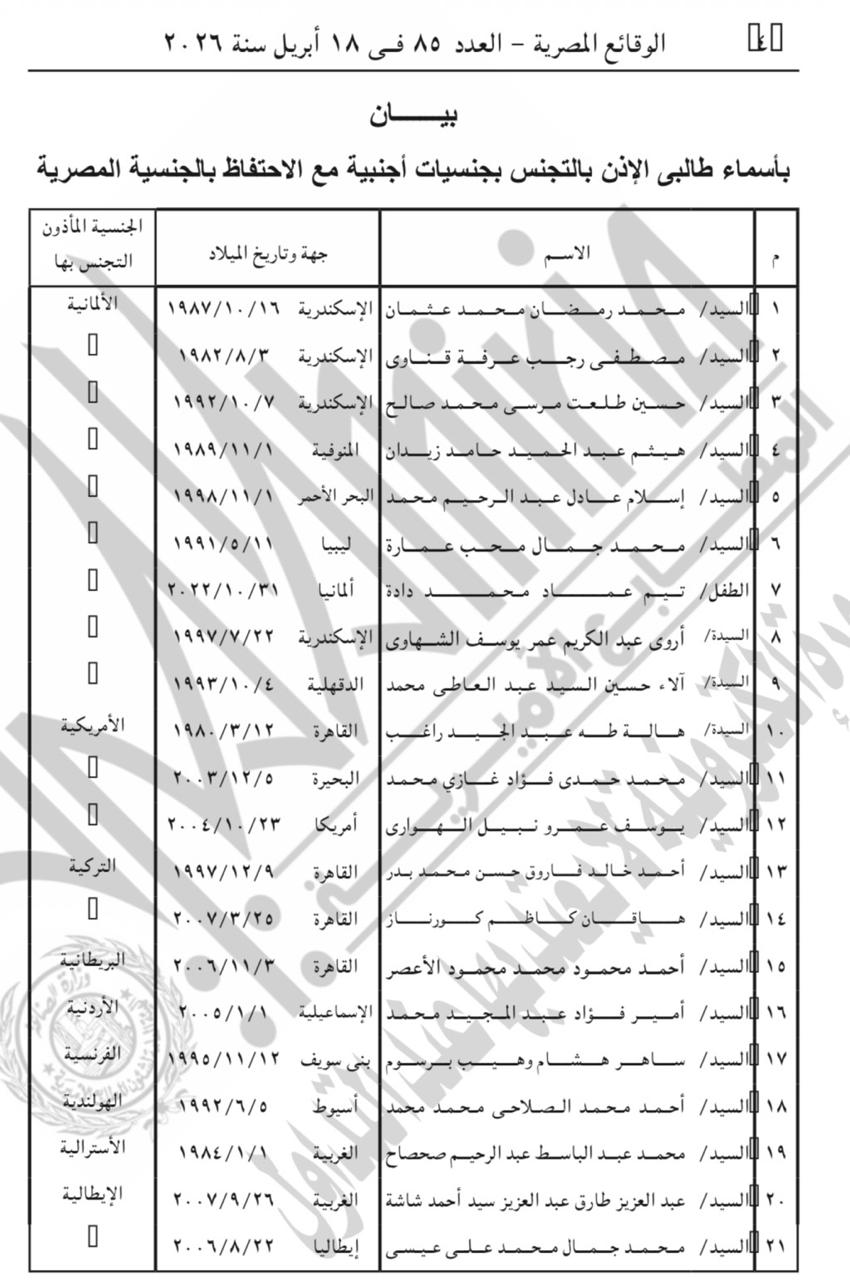 ٤
الوقائع المصرية – العدد ٨٥ فى ١٨ أبريل سنة ٢٠٢٦
بيـــــان
بأسماء طالبى الإذن بالتجنس بجنسيات أجنبية مع الاحتفاظ بالجنسية المصرية
م الاسـم جهة وتاريخ الميلاد الجنسية المأذون التجنس بها
١ السيد/ محمد رمضان محمد عثمان الإسكندرية ١٩٨٧/١٠/١٦ الألمانية
٢ السيد/ مصطفى رجب عرفة قناوى الإسكندرية ١٩٨٢/٨/٣
٣ السيد/ حسين طلعت مرسى محمد صالح الإسكندرية ١٩٩٢/١٠/٧
٤ السيد/ هيثم عبد الحميد حامد زيدان المنوفية ١٩٨٩/١١/١
٥ السيد/ إسلام عادل عبد الرحيم محمد البحر الأحمر ١٩٩٨/١١/١
٦ السيد/ محمد جمال محب عمارة ليبيا ١٩٩١/٥/١١
٧ الطفل/ تيم عماد محمد دادة ألمانيا ٢٠٢٢/١٠/٣١
٨ السيدة/ أروى عبد الكريم عمر يوسف الشهاوى الإسكندرية ١٩٩٧/٧/٢٢
٩ السيدة/ آلاء حسين السيد عبد العاطى محمد الدقهلية ١٩٩٣/١٠/٤
١٠ السيدة/ هالة طه عبد الجيد راغب القاهرة ١٩٨٠/٣/١٢ الأمريكية
١١ السيد/ محمد حمدى فؤاد غازي محمد البحيرة ٢٠٠٣/١٢/٥
١٢ السيد/ يوسف عمرو نبيل الهوارى أمريكا ٢٠٠٤/١٠/٢٣
١٣ السيد/ أحمد خالد فاروق حسن محمد بدر القاهرة ١٩٩٧/١٢/٩ التركية
١٤ السيد/ هاقان كاظم كورناز القاهرة ٢٠٠٧/٣/٢٥
١٥ السيد/ أحمد محمود محمد محمود الأعصر القاهرة ٢٠٠٦/١١/٣ البريطانية
١٦ السيد/ أمير فؤاد عبد المجيد محمد الإسماعيلية ٢٠٠٥/١/١ الأردنية
١٧ السيد/ ساهر هشام وهيب برسوم بنى سويف ١٩٩٥/١١/١٢ الفرنسية
١٨ السيد/ أحمد محمد الصلاحى محمد محمد أسيوط ١٩٩٢/٦/٥ الهولندية
١٩ السيد/ محمد عبد الباسط عبد الرحيم صحصاح الغربية ١٩٨٤/١/١ الأسترالية
٢٠ السيد/ عبد العزيز طارق عبد العزيز سيد أحمد شاشة الغربية ٢٠٠٧/٩/٢٦ الإيطالية
٢١ السيد/ محمد جمال محمد على عيسى إيطاليا ٢٠٠٦/٨/٢٢
المطابع الأميرية